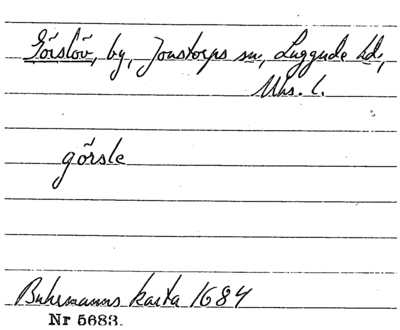 Görslöv, by, Jonstorps sn, Luggude hd,
Mhs. l.
görsle
Buhrmanns karta 1684
Nr 5683.